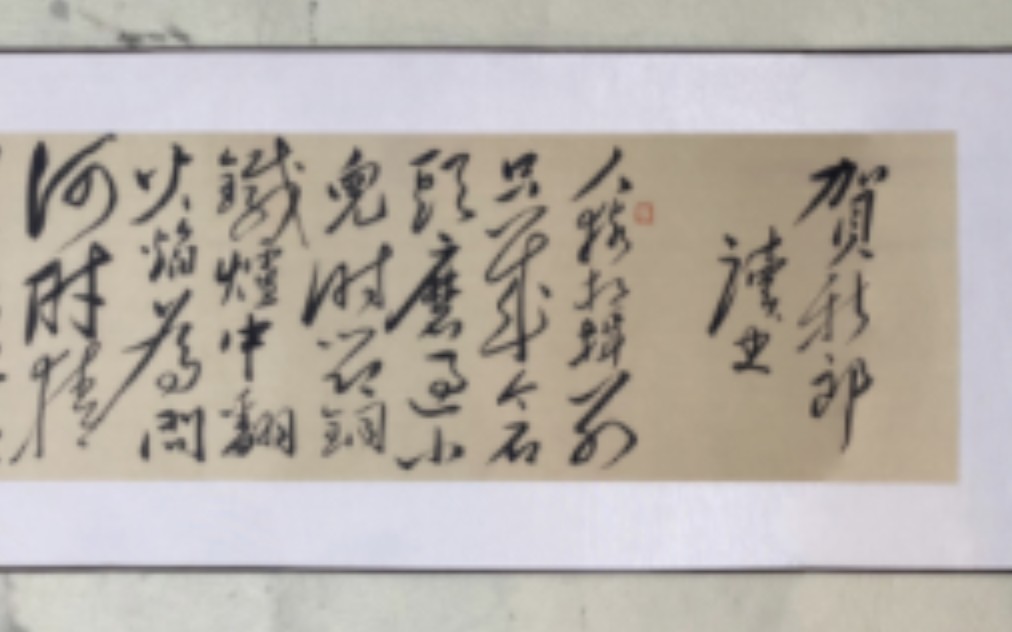 賀新郎
讀史
人猿相揖别
只幾个石
頭磨過小
兒時節銅
鐵爐中翻
火焰為問
何時猜